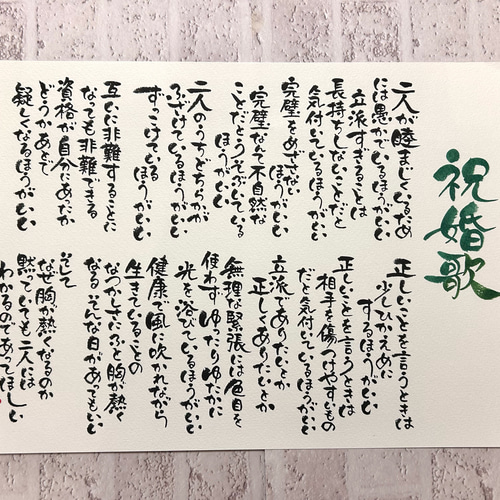 祝婚歌
二人が睦まじくいるため
には愚かでいるほうがいい
立派すぎることは
長持ちしないことだと
気付いているほうがいい
完璧をめざさな
ほうがいい
完璧なんて不自然な
ことだとうそぶいている
ほうがいい
二人のうちどちらかが
ふざけているほうがいい
ずっこけている
ほうがいい
互いに非難することに
なっても非難できる
資格が自分にあったか
どうかあとで
疑しくなるほうがいい
正しいことを言うときは
少しひかえめに
するほうがいい
正しいことを言うときは
相手を傷つけやすいもの
だと気付いているほうがいい
立派でありたいとか
正しくありたいとか
無理な緊張には色目を
使わずゆったりゆたかに
光を浴びているほうがいい
健康で風に吹かれながら
生きていることの
なつかしさにふと胸が熱く
なるそんな日があってもいい
そして
なぜ胸が熱くなるのか
黙っていても二人には
わかるのであってほしい